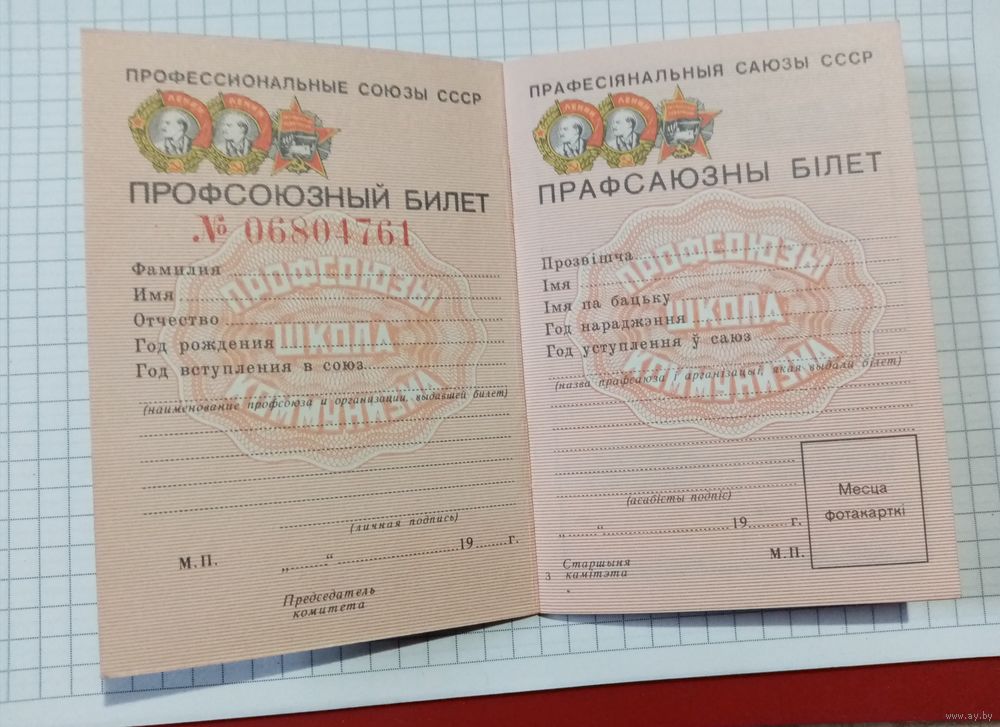 ПРОФЕССИОНАЛЬНЫЕ СОЮЗЫ СССР
ЛЕНИН ЛЕНИН
ПРОФСОЮЗНЫЙ БИЛЕТ
№ 06804761
ПРОФСОЮЗЫ
ШКОЛА
КОММУНИЗМА
Фамилия
Имя
Отчество
Год рождения
Год вступления в союз
(наименование профсоюза и организации, выдавшей билет)
(личная подпись)
М.П. „ “ 19 г.
Председатель
комитета
ПРАФЕСІЯНАЛЬНЫЯ САЮЗЫ СССР
ЛЕНИН ЛЕНИН
ПРАФСАЮЗНЫ БІЛЕТ
ПРОФСОЮЗЫ
ШКОЛА
КОММУНИЗМА
Прозвішча
Імя
Імя па бацьку
Год нараджэння
Год уступлення ў саюз
(назва прафсаюза і арганізацыі, якая выдала білет)
(асабісты подпіс)
„ “ 19 г.
М.П.
Месца
фотакарткі
Старшыня
камітэта
3
www.ay.by